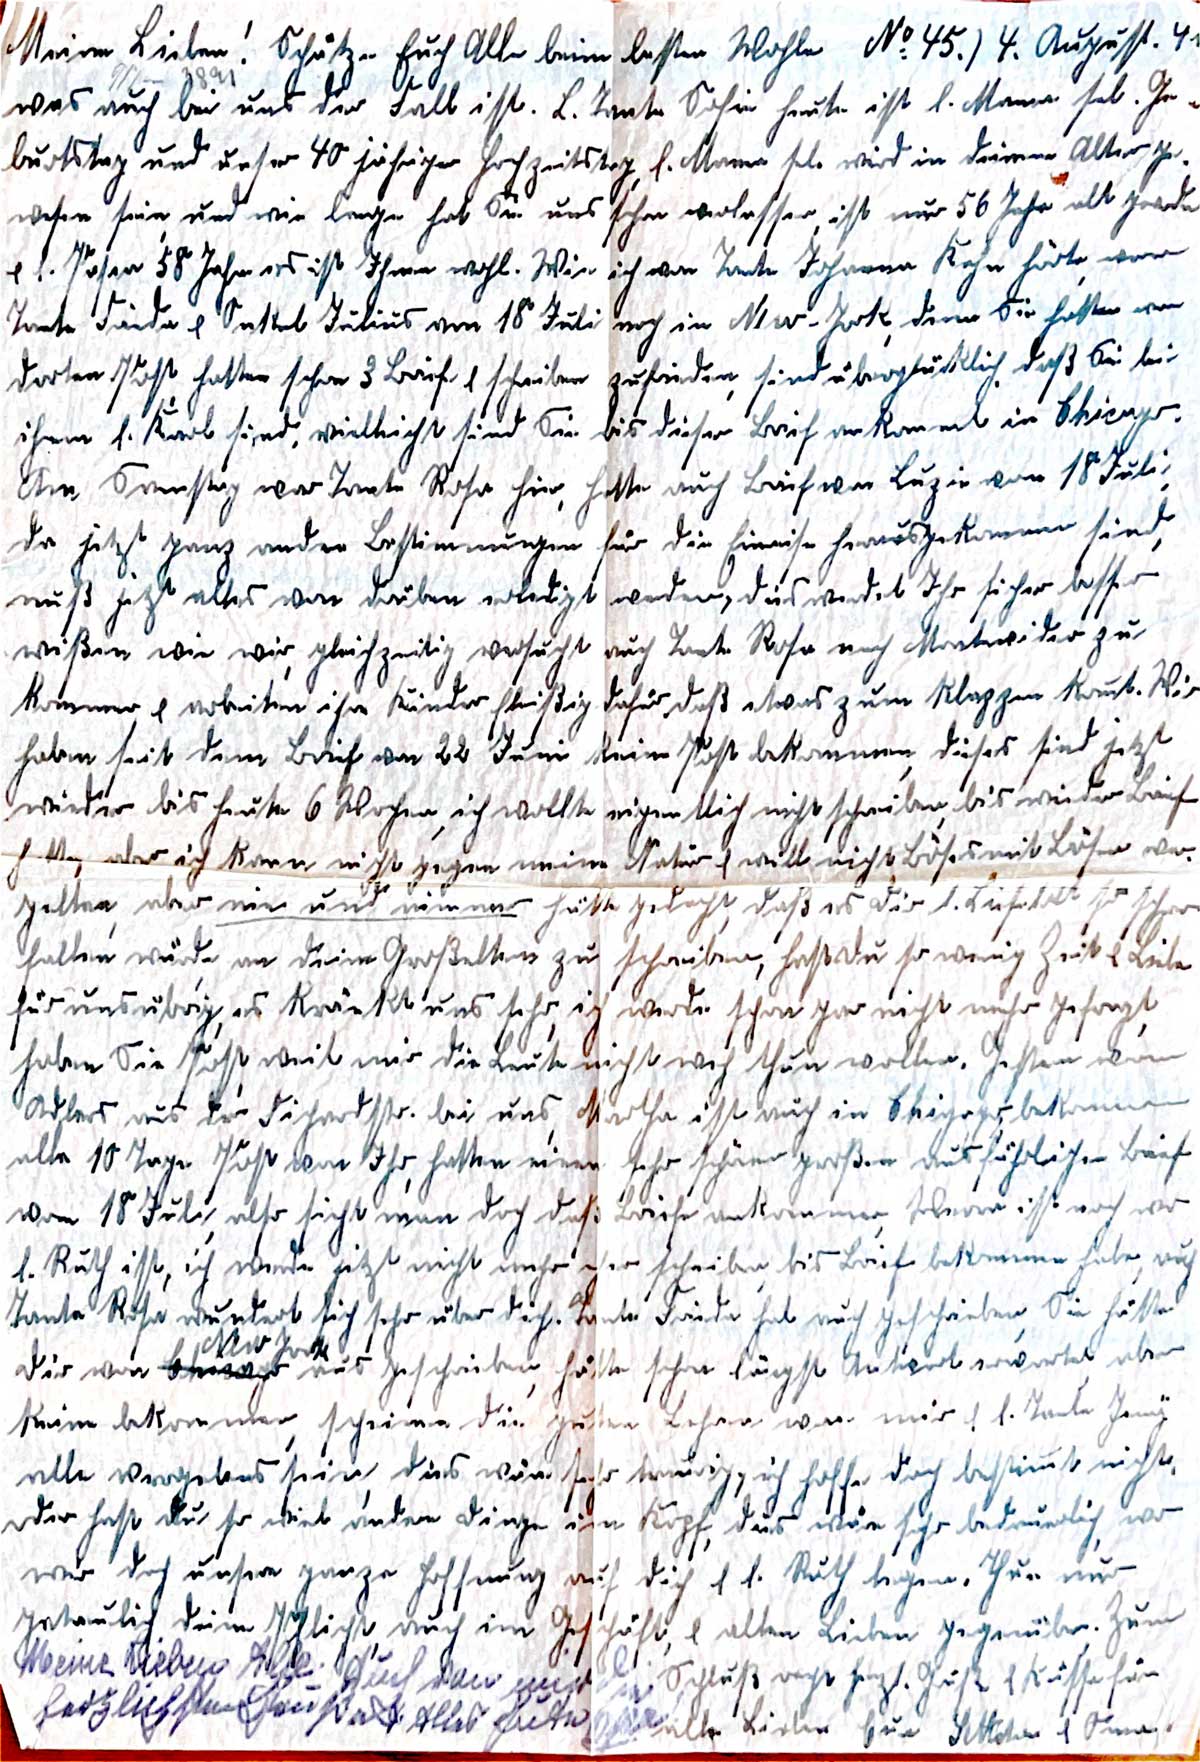 Meine Lieben! Schätze Euch Alle beim besten Wohle No. 45.) 4. August. 41
3891
was auch bei uns der Fall ist. L. Tante Sofie heute ist l. Mama sel. Ge-
burtstag und unser 40 jähriger Hochzeitstag, l. Mama sel. wird in deinem Alter ge-
wesen sein, und wie lange hat Sie uns schon verlassen, ist nur 56 Jahre alt geworden
& l. 58 Jahre es ist Ihnen wohl. Wie ich von Tante Johanna Kahn hörte, waren
Tante Frieda & Onkel Julius am 18 Juli noch in New-York, denn Sie hatten von
dorten Post hatten schon 3 Briefe & schreiben zufrieden, sind überglücklich, daß Sie bei
ihrem l. Karl sind, vielleicht sind Sie bis dieser Brief ankommt in Chicago.
Am Samstag war Tante Rosa hier, hatte auch Brief von Luzie vom 18 Juli,
da jetzt ganz andere Bestimmungen für die Einreise herausgekommen sind,
muß jetzt alles von drüben erledigt werden, dies werdet Ihr sicher besser
wißen wie wir, gleichzeitig versucht auch Tante Rosa nach Montevideo zu
kommen, & arbeiten ihre Kinder fleißig dafür, daß etwas zum Klappen kommt. Wir
haben seit dem Brief vom 22 Juni keine Post bekommen, dieses sind jetzt
wieder bis heute 6 Wochen, ich wollte eigentlich nicht schreiben, bis wieder Brief
hätte, aber ich kann nicht gegen meine Natur & will nicht Böses mit Bösen ver-
gelten, aber nie und nimmer hätte gedacht, daß es dir l. so schwer
fallen würde, an deine Großeltern zu schreiben, hast du so wenig Zeit & Liebe
für uns übrig, es kränkt uns sehr, ich werde schon gar nicht mehr gefragt,
haben Sie Post, weil mir die Leute nicht weh thun wollen. Gestern waren
Adlers aus der Fichardstr. bei uns, Martha ist auch in Chigago, bekommen
alle 10 Tage Post von Ihr, hatten einen sehr schönen großen ausführlichen Brief
vom 18 Juli, also sieht man doch daß Briefe ankommen, ist noch wo
l. Ruth ist, ich werde jetzt nicht mehr eher schreiben, bis Brief bekommen habe, auch
Tante Rosa wundert sich sehr über dich. Tante Frieda hat auch geschrieben, Sie hätte
dir von Chicago New York aus geschrieben, hätte schon längst Antwort erwartet, aber
keine bekommen, scheinen die guten Lehren von mir & l. Tante Jenny
alle vergebens sein, dies wäre sehr traurig, ich hoffe doch bestimmt nicht,
oder hast du so viel andere Dinge im Kopf, dies wäre sehr bedauerlich, wo
wir doch unsere ganze Hoffnung auf dich & l. Ruth legen. Thue nur
getreulich deine Pflicht, auch im Geschäft, & allen Lieben gegenüber. Zum
Schluß recht herzl. Grüße & Küsse für
alle Lieben Eure &
Meine Lieben Alle. Auch von mir die
herzlichsten Grüße Alles Gute